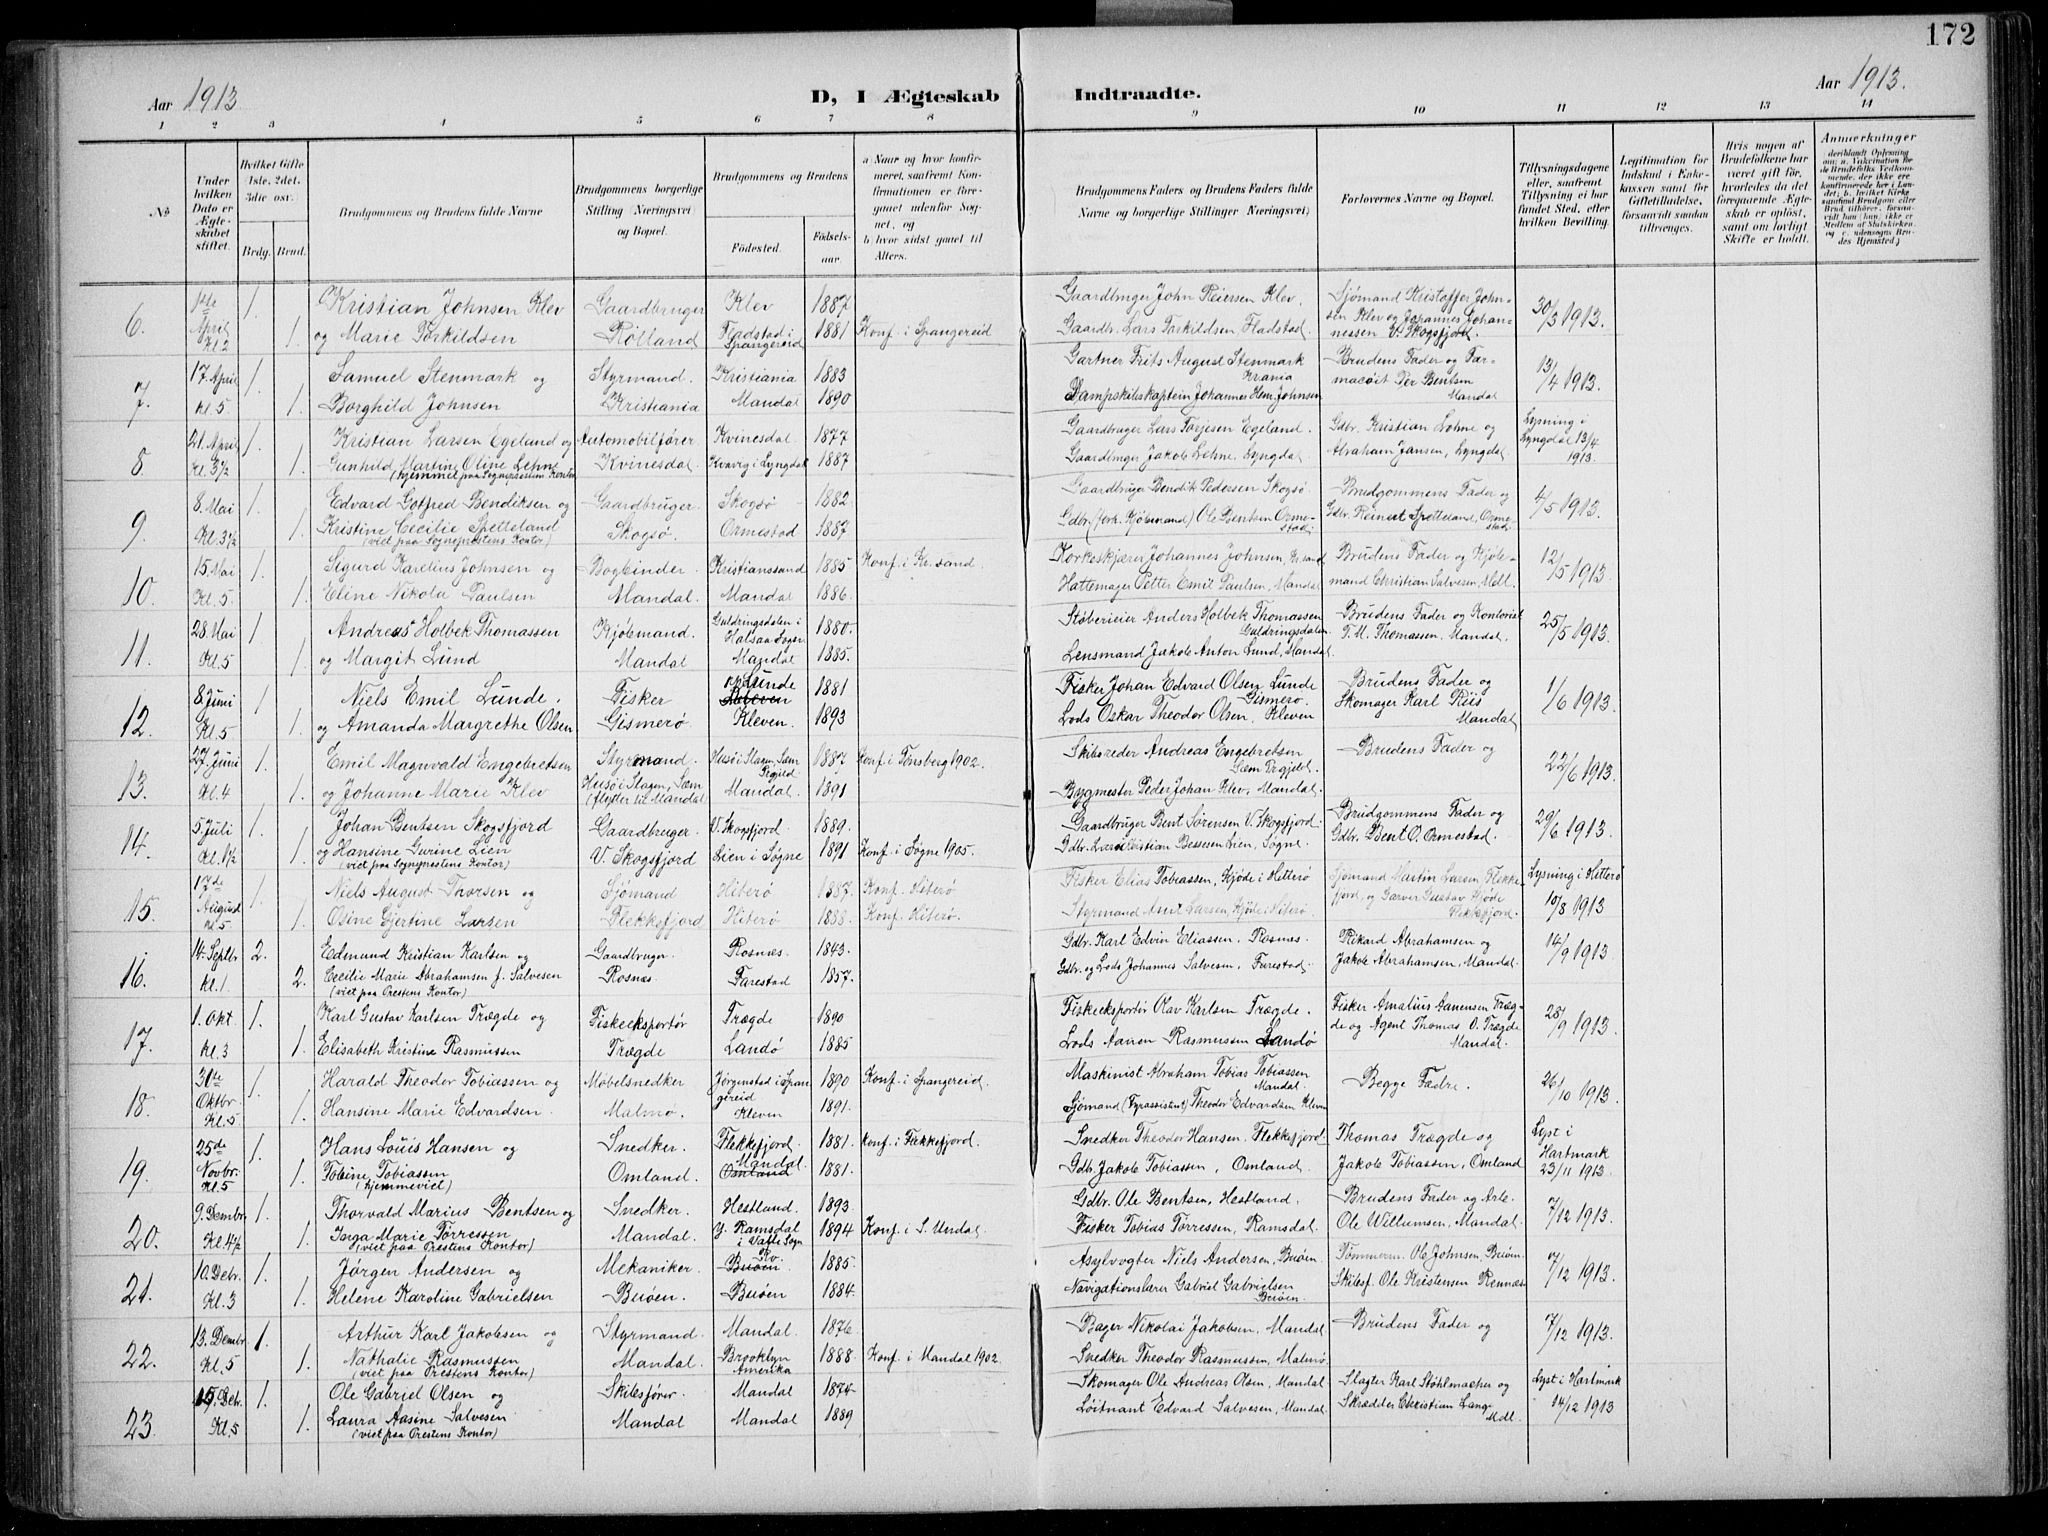 172
Aar 1913
D, I Ægteskab Indtraadte.
Aar 1913.
1 2 3 4 5 6 7 8 9 10 11 12 13 14
No
Under hvilken Dato er Ægteskabet stiftet.
Hvilket Gifte 1ste, 2det, 3die osv.
Brdg. Brud.
Brudgommens og Brudens fulde Navne
Brudgommens borgerlige Stilling (Næringsvei) og Bopæl.
Brudgommens og Brudens
Födested. Födselsaar.
a) Naar og hvor konfirmeret, saafremt Konfirmationen er foregaaet udenfor Sognet, og
b) hvor sidst gaaet til Alters.
Brudgommens Faders og Brudens Faders fulde Navne og borgerlige Stillinger (Næringsvei)
Forlovernes Navne og Bopæl.
Tillysningsdagene eller, saafremt Tillysning ei har fundet Sted, efter hvilken Bevilling.
Legitimation for Indskud i Enkekassen samt for Giftetilladelse, forsaavidt saadan tiltrænges.
Hvis nogen af Brudefolkene har været gift før, hvorledes da det foregaaende Ægteskab er oplöst, samt om lovligt Skifte er holdt.
Anmerkninger
6. 1ste April Kl 2 1. Kristian Johnsen Klev Gaardbruger Klev 1887 Gaardbruger John Reiersen Klev. Sjömand Kristoffer Johnsen Klev og Johannes Johannessen V. Skogsfjord. 30/3 1913.
1. og Marie Torkildsen Rölland Fladstad i Spangereid 1881 Konf. i Spangereid Gaardb. Lars Torkildsen Fladstad.
7. 17. April Kl. 5 1. Samuel Stenmark og Styrmand. Kristiania 1883 Gartner Frits August Stenmark Krania Brudens Fader og Farmacöit Per Bentsen Mandal 13/4 1913.
1. Borghild Johnsen Kristiania Mandal 1890 Dampskibskaptein Johannes Henr. Johnsen
8. 21. April Kl. 3½ 1. Kristian Larsen Egeland og Automobilfører. Kvinesdal. 1877 Gaardbruger Lars Torjesen Egeland. Gdbr. Kristian Lohne og Abraham Jansen, Lyngdal Lysning i Lyngdal 13/4 1913.
1. Gunhild Martine Oline Lehne Kvinesdal. Kvavig i Lyngdal 1887 Gaardbruger Jakob Lehne, Lyngdal
(hjemmet paa Sogneprestens Kontor)
9. 8. Mai Kl. 3½ 1. Edvard Gotfred Bendiksen og Gaardbruger Skogsø 1882 Gaardbruger Bendik Pedersen Skogsø Brudgommens Fader og Gdbr. Reinert Spetteland, Ormestad. 4/5 1913.
1. Kristine Cecilie Spetteland Skogsø. Ormestad 1887 Gdbr. (forh. Kjöbmand) Ole Bentsen Ormestad.
(viet paa Sogneprestens Kontor)
10. 15. Mai Kl. 5 1. Sigurd Karelius Johnsen og Bogbinder. Kristianssand 1885 Konf. i Kr. sand. Korkeskjærer Johannes Johnsen, Kr.sand Brudens Fader og Kjöbmand Christian Salvesen, Mdl. 12/5 1913.
1. Eline Nikola Paulsen Mandal. Mandal 1886. Hattemager Petter Emil Paulsen, Mandal
11. 28. Mai Kl. 5 1 Andreas Holbek Thomassen Kjöbmand. Guldringsdalen i Halsaa Sogn 1880. Støberieier Anders Holbek Thomassen Guldringsdalen. Brudens Fader og Kontorist T. M. Thomassen, Mandal. 25/5 1913.
1 og Margit Lund Mandal Mandal 1885. Lensmand Jakob Anton Lund, Mandal.
12. 8. Juni Kl. 5 1 Niels Emil Lunde. Fisker Lunde 1881 Fisker Johan Edvard Olsen Lunde Gismerø. Brudens Fader og Skomager Karl Riis Mandal 1/6 1913.
1. og Amanda Margrethe Olsen Gismerø Kleven. 1893 Lods Oskar Theodor Olsen, Kleven
13. 27. Juni Kl. 4 1. Emil Magnvald Engebretsen Styrmand. Husö i Slagen, Sæm Prgjeld 1887 Konf. i Tønsberg 1902. Skibsreder Andreas Engebretsen Sæm Prgjeld. Brudens Fader og 22/6 1913.
1. og Johanne Marie Klev Husö i Slagen, Sæm (flytter til Mandal) Mandal. 1891 Bygmester Peder Johan Klev, Mandal.
14. 5. Juli Kl. 1½ 1 Johan Bentsen Skogsfjord Gaardbruger. V. Skogsfjord. 1889. Gaardbruger Bent Sørensen V. Skogsfjord. Brudgommens Fader og Gdbr. Bent O. Ormestad. 29/6 1913.
1 og Hansine Gurine Lien V. Skogsfjord Lien i Søgne 1891 Konf. i Søgne 1905. Lien, Søgne.
(viet paa Sogneprestens Kontor)
15. 17de August Kl. 5 1. Niels August Thorsen og Sjömand Hiterø 1887. Konf. Hiterø Fisker Elias Tobiassen, Kjöde i Hitterø Sjömand Martin Larsen Flekkefjord, og Garver Gustav Kjöde Flekkefjord. Lysning i Hitterø 10/8 1913
1. Osine Gjertine Larsen Flekkefjord Hiterø 1888. Konf. Hiterø. Styrmand Arnt Larsen, Kjöde i Hiterø
16. 14. Septbr Kl. 1 2. Edmund Kristian Karlsen og Gaardbruger. Rosnæs. 1843. Gdbr. Karl Edvin Eliassen. Rosnæs. Rikard Abrahamsen og Jakob Abrahamsen, Mandal. 14/9 1913
2. Cecilie Marie Abrahamsen f. Salvesen Rosnæs. Farestad 1857. Gdbr. og Lods Johannes Salvesen, Farestad.
(viet paa Prestens Kontor)
17. 1. Okt Kl. 3 1. Karl Gustav Karlsen Trægde og Fiskeeksportør Trægde 1890 Fiskeeksportør Olav Karlsen Trægde. Fisker Amalius Aanensen Trægde og Agent Thomas O. Trægde Mandal. 28/9 1913.
1. Elisabeth Kristine Rasmussen Trægde Landö 1885 Lods Aanen Rasmussen Landö
18. 30te Oktbr Kl. 5 1. Harald Theodor Tobiassen og Møbelsnedker Jørgenstad i Spangereid 1890 Konf. i Spangereid. Maskinist Abraham Tobias Tobiassen Mandal. Begge Fædre. 26/10 1913.
1. Hansine Marie Edvardsen. Malmø. Kleven 1891. Sjömand (Fyrassistent) Theodor Edvardsen Kleven
19. 25de Novbr. Kl. 5 1. Hans Louis Hansen og Snedker. Flekkefjord. 1881. Konf. i Flekkefjord. Snedker Theodor Hansen. Flekkefjord. Thomas Trægde og Jakob Tobiassen, Omland Lyst i Hartmark 23/11 1913.
1. Tobine Tobiassen Omland. Mandal. Omland 1881. Gdb. Jakob Tobiassen, Omland.
(hjemmeviet)
20. 9. Dembr. Kl. 4½ 1. Thorvald Marius Bentsen og Snedker. Hestland. 1893. Gdbr. Ole Bentsen, Hestland. Brudens Fader og Arb. Ole Willumsen, Mandal. 7/12 1913.
1. Inga Marie Tørressen Mandal. Y. Ramsdal i Valle Sogn 1894 Konf. i S. Undal. Fisker Tobias Tørressen, Ramsdal.
(viet paa Prestens Kontor)
21. 10. Debr. Kl. 3 1. Jørgen Andersen og Mekaniker. Buöen. 1885. Asylvogter Niels Andersen, Buöen. Tömmerm. Ole Johnsen, Buöen. Skibsf. Ole Kristensen Rennæs. 7/12 1913.
1. Helene Karoline Gabrielsen Buöen. Buöen 1884. Navigationslærer Gabriel Gabrielsen Buöen.
22. 13. Dembr. Kl. 5 1. Arthur Karl Jakobsen og Styrmand. Mandal. 1876. Bager Nikolai Jakobsen, Mandal. Brudens Fader og 7/12 1913.
1. Nathalie Rasmussen Mandal. Brooklyn Amerika 1888. Konf. i Mandal 1902. Snedker Theodor Rasmussen, Malmø.
(viet paa Prestens Kontor)
23. 15. Deb. Kl. 5 1. Ole Gabriel Olsen og Skibsfører. Mandal 1874. Skomager Ole Andreas Olsen, Mandal. Slagter Karl Stöhlmacher og Skrædder Christian Lang Mdl. Lyst i Hartmark 14/12 1913
1. Laura Aasine Salvesen Mandal Mandal 1889 Löitnant Edvard Salvesen, Mandal.
(viet paa Prestens Kontor)